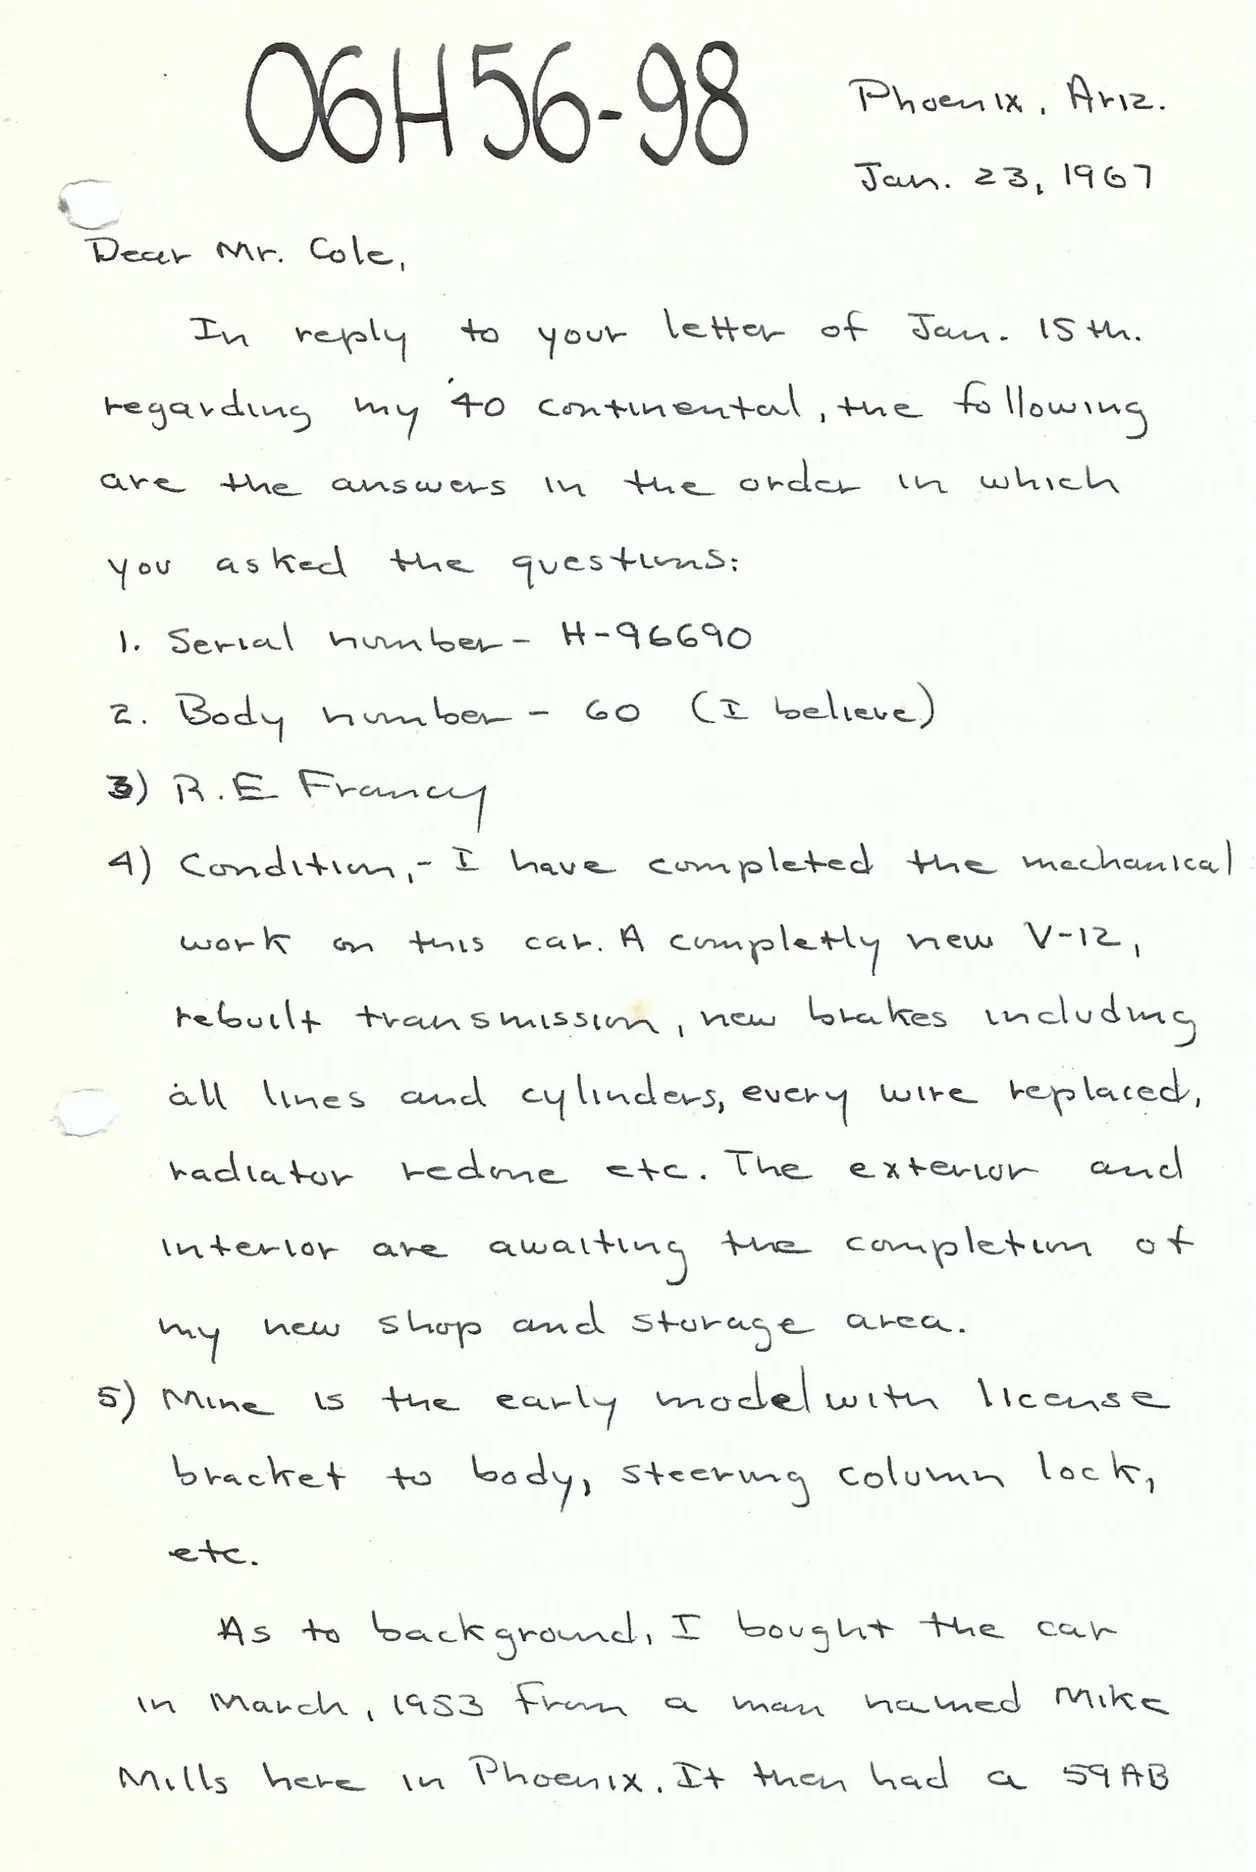 06H56-98
Phoenix, Ariz.
Jan. 23, 1967
Dear Mr. Cole,
In reply to your letter of Jan. 15th.
regarding my '40 continental, the following
are the answers in the order in which
you asked the questions:
1. Serial number - H-96690
2. Body number - 60 (I believe)
3) R.E Francy
4) Condition,- I have completed the mechanical
work on this car. A completly new V-12,
rebuilt transmission, new brakes including
all lines and cylinders, every wire replaced,
radiator redone etc. The exterior and
interior are awaiting the completion of
my new shop and storage area.
5) Mine is the early model with license
bracket to body, steering column lock,
etc.
As to background, I bought the car
in March, 1953 from a man named Mike
Mills here in Phoenix. It then had a 59AB